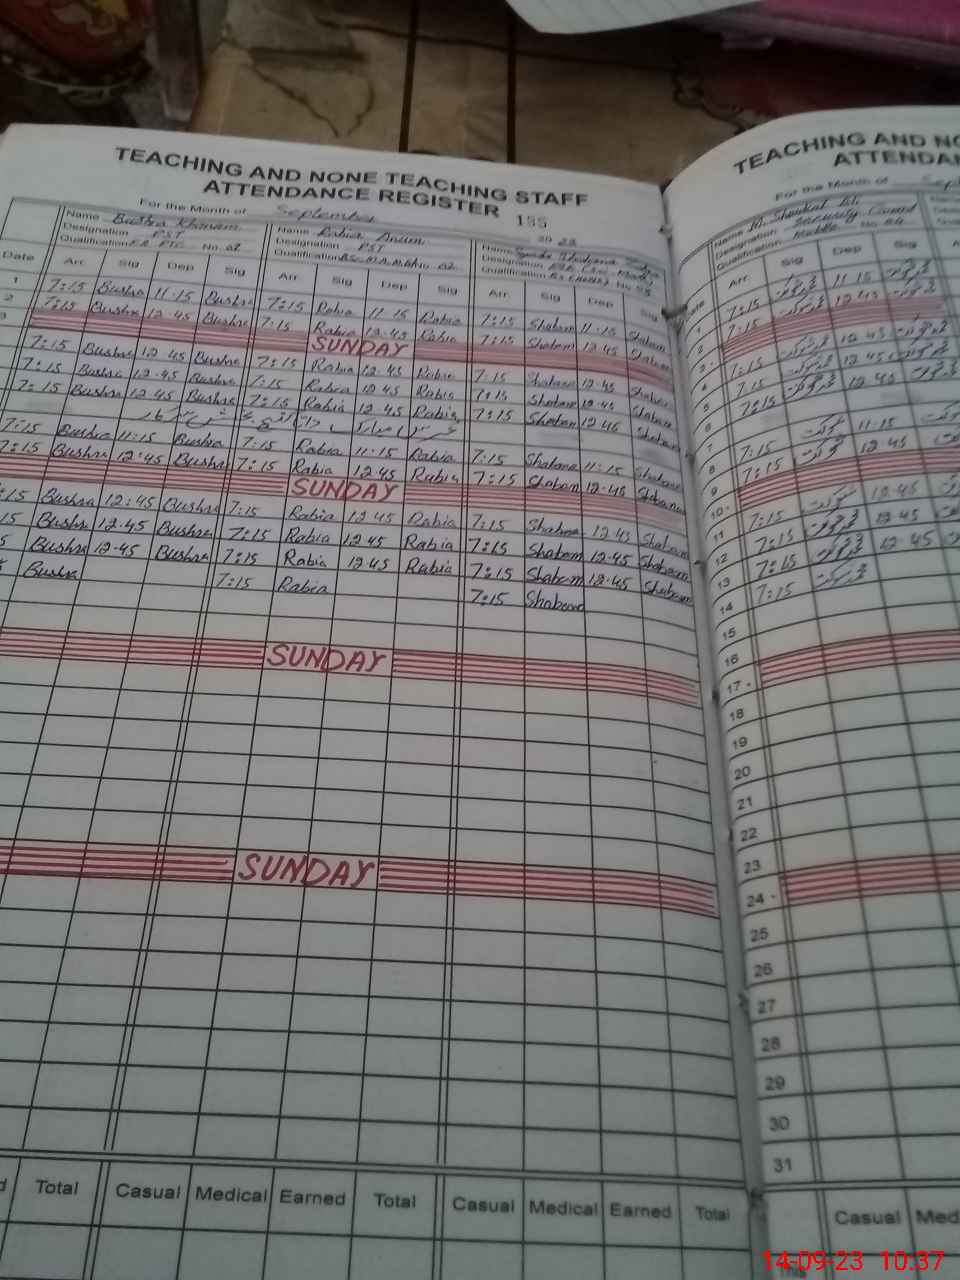 TEACHING AND NONE TEACHING STAFF
ATTENDANCE REGISTER 135
For the Month of September 20 23
Name Bushra Khanam Name Rabia Anum Name
Designation PST Designation PST Designation
Qualification No. 02 Qualification No. 02 Qualification No
Date Arr. Sig Dep Sig Arr. Sig Dep Sig Arr. Sig Dep Sig
1 7:15 Bushra 11-15 Bushra 7:15 Rabia 11 15 Rabia 7:15 Shabam 11-15 Shabam
2 7:15 Bushra 12-45 Bushra 7-15 Rabia 12-45 Rabia 7:15 Shabam 12 45 Shabam
3 SUNDAY
7:15 Bushra 12 45 Bushra 7:15 Rabia 12 45 Rabia 7-15 Shabam 12-45 Shabam
7:15 Bushra 12-45 Bushra 7:15 Rabia 12 45 Rabia 7:15 Shabam 12-45 Shabam
7:15 Bushra 12 45 Bushra 7:15 Rabia 12 45 Rabia 7:15 Shabam 12 45 Shabam
7:15 Bushra 11:15 Bushra 7:15 Rabia 11.15 Rabia 7:15 Shabam 11-15 Shabam
7:15 Bushra 12-45 Bushra 7:15 Rabia 12 45 Rabia 7:15 Shabam 12-45 Shabam
SUNDAY
:15 Bushra 12:45 Bushra 7:15 Rabia 12 45 Rabia 7:15 Shabam 12 45 Shabam
15 Bushra 12-45 Bushra 7:15 Rabia 12 45 Rabia 7:15 Shabam 12-45 Shabam
5 Bushra 12-45 Bushra 7:15 Rabia 12-45 Rabia 7:15 Shabam 12-45 Shabam
Bushra 7:15 Rabia 7:15 Shabam
SUNDAY
SUNDAY
Total Casual Medical Earned Total Casual Medical Earned Total
TEACHING AND NO
ATTENDAN
For the Month of Sep
Name M. Shaukat Ali
Designation Security Guard
Qualification Middle No. 04
Date Arr. Sig Dep Sig
1 7:15 11 15
2 7:15 12 45
3
4 7:15 12 45
5 7:15 12 45
6 7:15 12 45
7
8 7:15 11-15
9 7:15 12 45
10
11 7:15 12 45
12 7:15 12 45
13 7:15 12-45
14 7:15
15
16
17
18
19
20
21
22
23
24
25
26
27
28
29
30
31
Casual Med
This
14-09-23 10:37